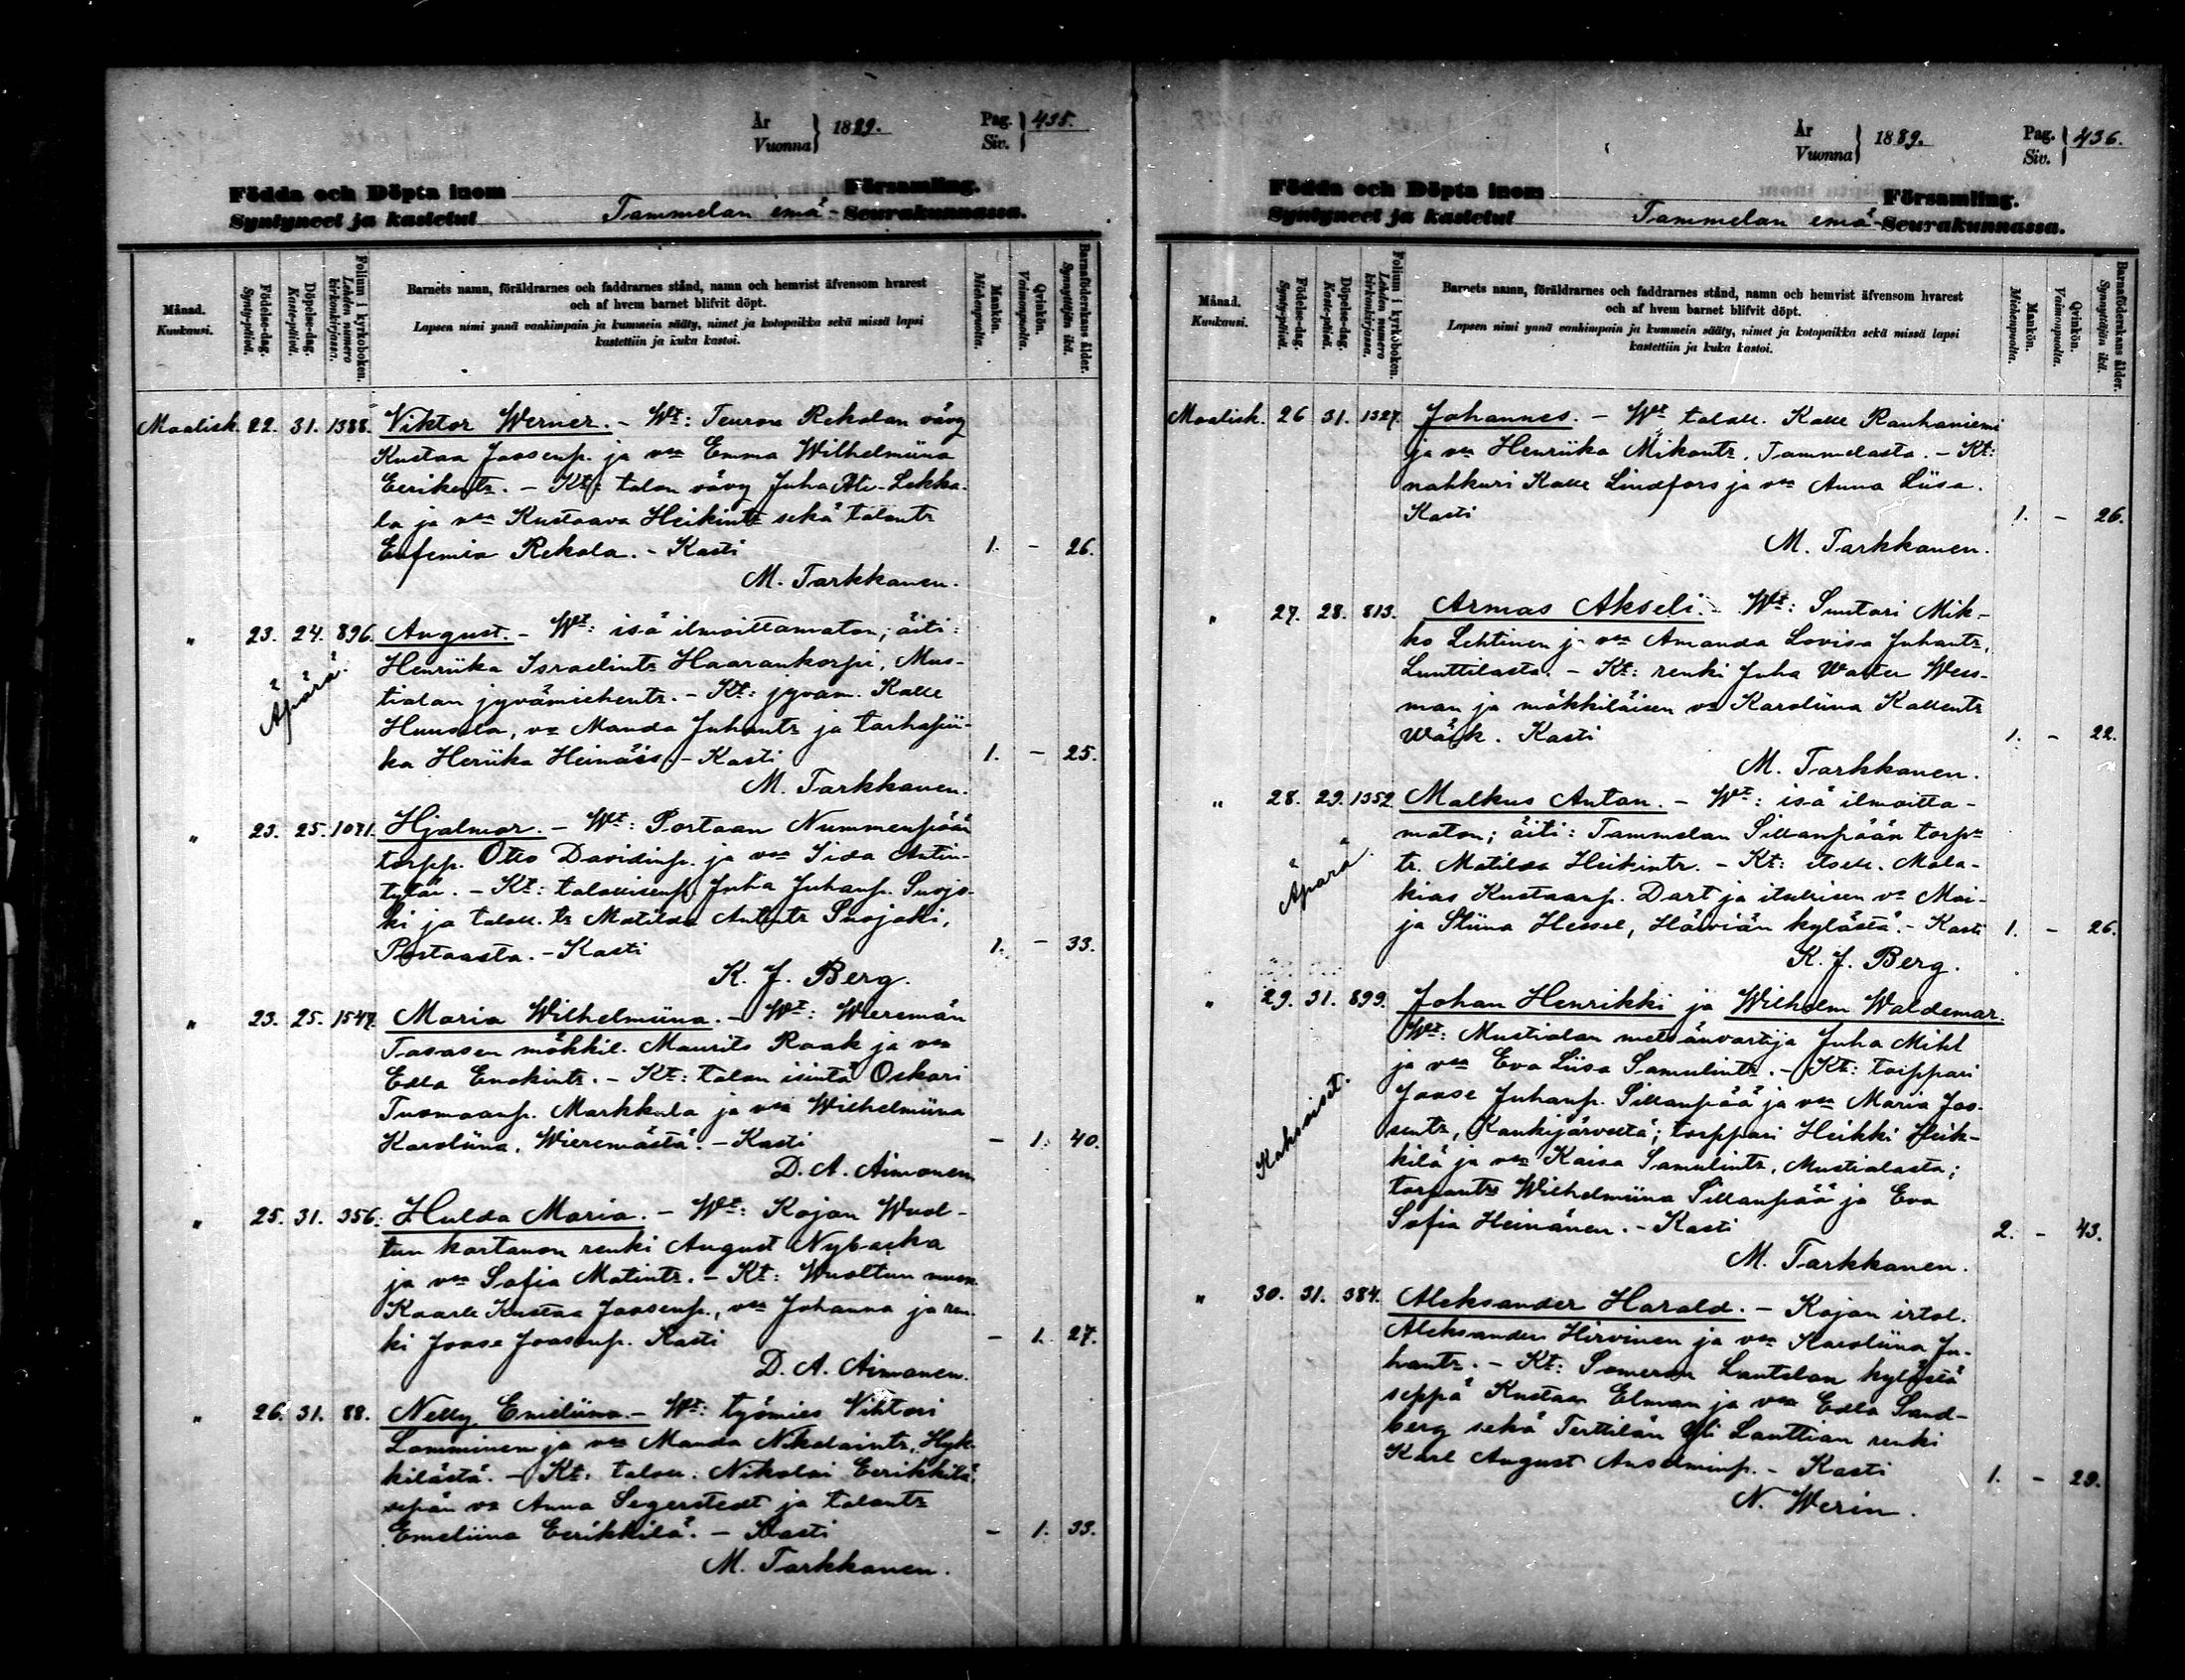 År
Vuonna } 1889.
Pag.
Siv. } 435.
Födda och Döpta inom Församling.
Syntyneet ja kastetut Tammelan emä- Seurakunnassa.
Månad.
Kuukausi.
Födelse-dag.
Synty-päivä.
Döpelse-dag.
Kaste-päivä.
Folium i kyrkoboken.
Lehden numero kirkonkirjassa.
Barnets namn, föräldrarnes och faddrarnes stånd, namn och hemvist äfvensom hvarest
och af hvem barnet blifvit döpt.
Lapsen nimi ynnä vanhimpain ja kummein sääty, nimet ja kotopaikka sekä missä lapsi
kastettiin ja kuka kastoi.
Mankön.
Miehenpuolta.
Qvinkön.
Vaimonpuolta.
Barnaföderskans ålder.
Synnyttäjän ikä.
Maalisk. 22. 31. 1388. Viktor Werner. - Wt: Teuron Rekolan vävy
Kustaa Joosenp. ja vmo Emma Wilhelmiina
Eerikntr. - Kt: talon vävy Juha Ali-Lekka-
la ja vmo Kustaava Heikintr sekä talontr
Eufemia Rekola. - Kasti 1. - 26.
M. Tarkkanen.
" 23. 24. 896. August. - Wt: isä ilmoittamaton; äiti:
Henriika Israelintr Haarankorpi, Mus-
tialan jyvämiehentr. - Kt: jyväm. Kalle
Huusela, vo Manda Juhantr ja tarhapii-
ka Heriika Heinäis. - Kasti 1. - 25.
Äpärä.
M. Tarkkanen.
" 23. 25. 1071. Hjalmar. - Wt: Portaan Nummenpään
torpp. Otto Davidinp. ja vmo Iida Antin-
tytär. - Kt: talollisenp. Juha Juhanp. Suojo-
ki ja talol. tr Matilda Antintr Suojoki,
Portaasta. - Kasti 1. - 33.
K. J. Berg.
" 23. 25. 1547. Maria Wilhelmiina. - Wt: Wieremän
Tasasen mökkil. Maurits Raak ja vmo
Edla Enokintr. - Kt: talon isäntä Oskari
Tuomaanp. Markkula ja vmo Wilhelmiina
Karoliina, Wieremästä. - Kasti - 1. 40.
D. A. Aimonen
" 25. 31. 356. Hulda Maria. - Wt: Kojon Wuol-
tun kartanon renki August Nybacka
ja vmo Sofia Matintr. - Kt: Wuoltun
Kaarle Kustaa Joosenp., vmo Johanna ja ren-
ki Joose Joosenp. Kasti - 1. 27.
D. A. Aimonen.
" 26. 31. 88. Nelly Emeliina. - Wt: työmies Viktori
Lamminen ja vmo Manda Nikolaintr, Hyk-
kilästä. - Kt: talol. Nikolai Eerikkilä,
sepän vo Anna Segerstedt ja talontr
Emeliina Eerikkilä. - Kasti - 1. 33.
M. Tarkkanen.
År
Vuonna } 1889.
Pag.
Siv. } 436.
Födda och Döpta inom Församling.
Syntyneet ja kastetut Tammelan emä- Seurakunnassa.
Månad.
Kuukausi.
Födelse-dag.
Synty-päivä.
Döpelse-dag.
Kaste-päivä.
Folium i kyrkoboken.
Lehden numero kirkonkirjassa.
Barnets namn, föräldrarnes och faddrarnes stånd, namn och hemvist äfvensom hvarest
och af hvem barnet blifvit döpt.
Lapsen nimi ynnä vanhimpain ja kummein sääty, nimet ja kotopaikka sekä missä lapsi
kastettiin ja kuka kastoi.
Mankön.
Miehenpuolta.
Qvinkön.
Vaimonpuolta.
Barnaföderskans ålder.
Synnyttäjän ikä.
Maalisk. 26 31. 1327. Johannes. - Wt talol. Kalle Rauhaniemi
ja vmo Henriika Mikontr, Tammelasta. - Kt:
nahkuri Kalle Lindfors ja vmo Anna Liisa.
Kasti 1. - 26.
M. Tarkkanen.
" 27. 28. 813. Armas Akseli. - Wt: Suutari Mik-
ko Lehtinen ja vmo Amanda Lovisa Juhantr,
Lunttilasta. - Kt: renki Juha Walter Wess-
man ja mökkiläisen vo Karoliina Kallentr
Wäck. Kasti 1. - 22.
M. Tarkkanen.
" 28. 29. 1352 Malkus Anton. - Wt: isä ilmoitta-
maton; äiti: Tammelan Sillanpään torp.
tr. Matilda Heikintr. - Kt: itsell. Mala-
kias Kustaanp. Dart ja itsellisen vo Mai-
ja Stiina Hessel, Häiviän kylästä. - Kasti 1. - 26.
Äpärä
K. J. Berg.
" 29. 31. 899. Johan Henrikki ja Wilhelm Waldemar.
Wt: Mustialan metsänvartija Juha Mikl
ja vmo Eva Liisa Samulintr. - Kt: torppari
Joose Juhanp. Sillanpää ja vmo Maria Joo-
sentr, Kaukijärveltä; torppari Heikki Heik-
kilä ja vmo Kaisa Samulintr, Mustialasta;
torpantr Wilhelmiina Sillanpää ja Eva
Sofia Heinänen. - Kasti 2. - 43.
Kaksoiset.
M. Tarkkanen.
" 30. 31. 384. Aleksander Harald. - Kojon irtol.
Aleksander Hirvinen ja vmo Karoliina Ju-
hantr. - Kt: Someron Lautelan kylästä
seppä Kustaa Elman ja vmo Edla Sand-
berg sekä Terttilän Yli Lauttian renki
Karl August Anselminp. - Kasti 1. - 29.
N. Werin.